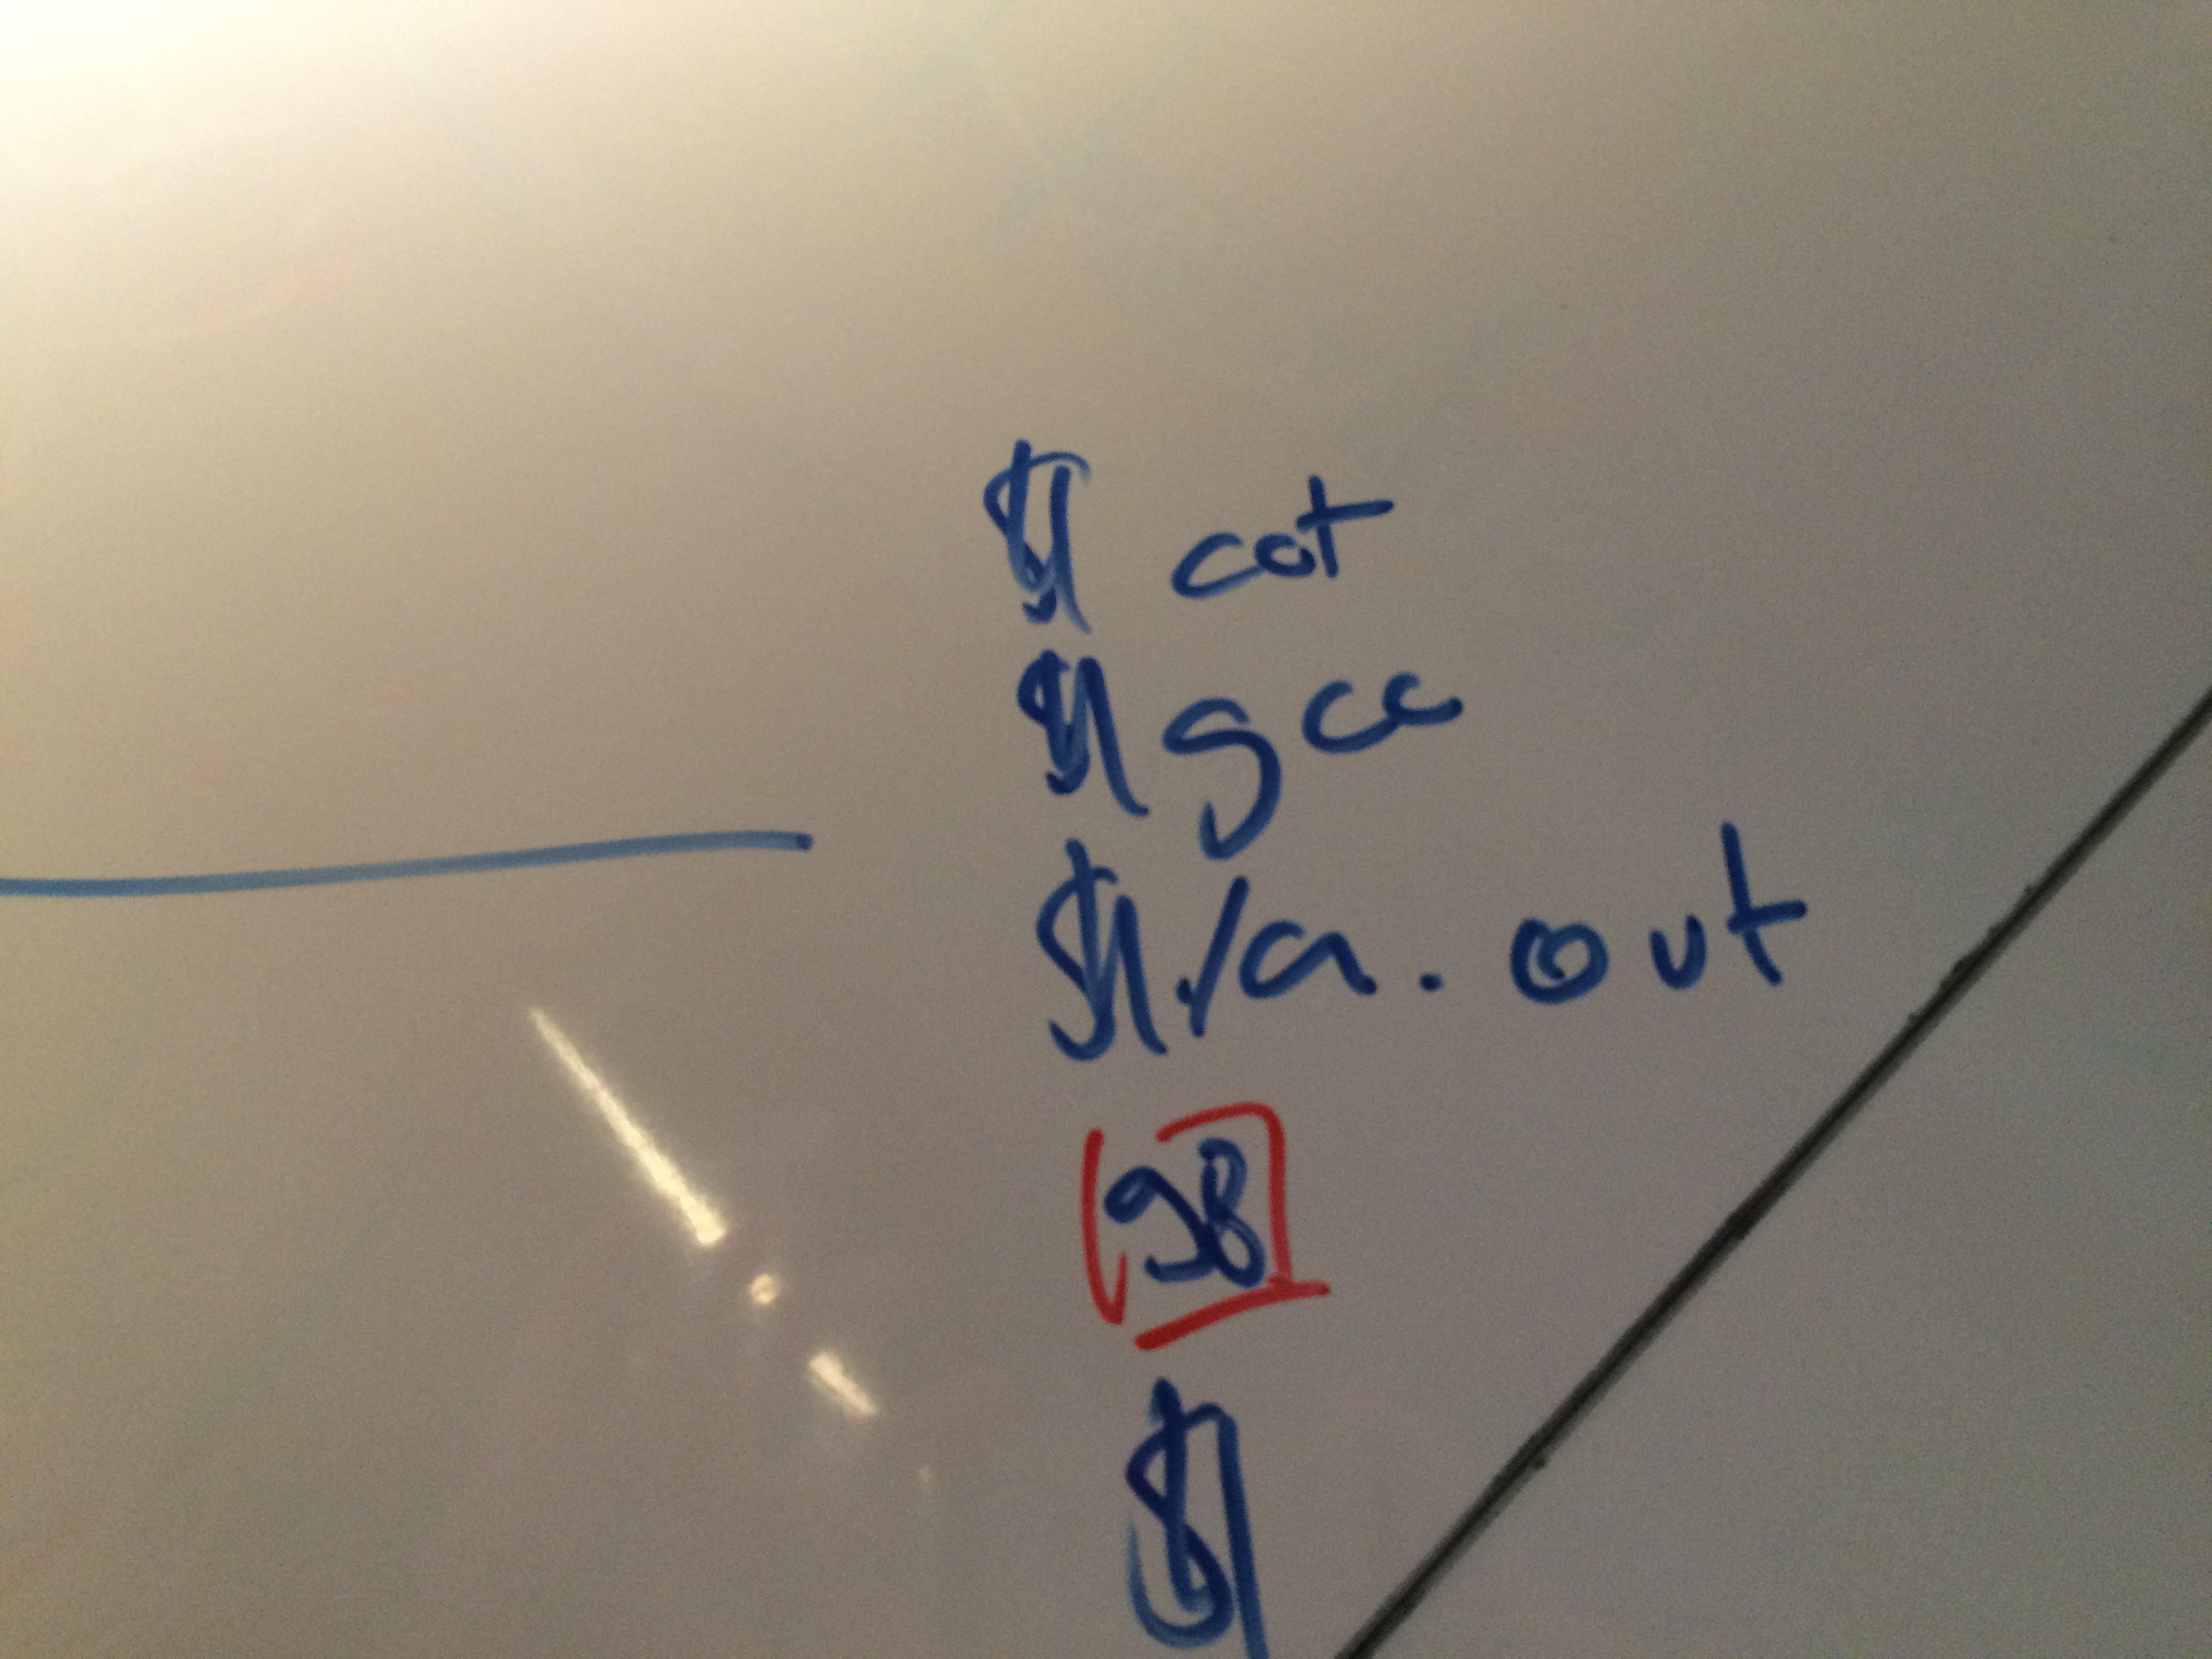 $ cat
$ gcc
$ ./a.out
98
$